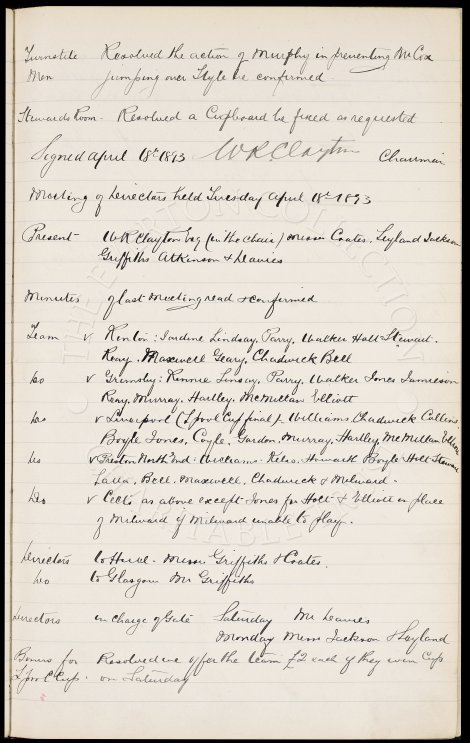 Turnstile Resolved the action of Murphy in preventing Mr Cox
Men jumping over Style be confirmed.
Stewards Room. Resolved a Cupboard be fixed as requested
Signed April 18th 1893 W R Clayton Chairman
Meeting of Directors held Tuesday April 18th 1893
Present W R Clayton Esq (in the chair) Messrs Coates, Leyland Jackson
Griffiths Atkinson & Davies
Minutes of last meeting read & confirmed
Team v Renton: Jardine Lindsay, Parry, Walker Holt Stewart.
Reay. Maxwell Geary, Chadwick Bell
Do v Grimsby: Rennie Linsay, Parry, Walker Jones Jamieson
Reay, Murray, Hartley, McMillan Elliott
Do v Liverpool (L'pool Cup final) Williams Chadwick Collins
Boyle Jones, Coyle, Gordon, Murray, Hartley, McMillan Elliott
Do v Preston North End: Williams. Kelso. Howarth Boyle Holt Stewart
Latta, Bell, Maxwell, Chadwick & Milward.
Do v Celts as above except Jones for Holt & Elliott in place
of Milward if Milward unable to play.
Directors to Messrs Griffiths & Coates.
Do to Glasgow Mr Griffiths
Directors in charge of Gate Saturday Mr Davies
Monday Messrs Jackson & Leyland
Bonus for Resolved we offer the team £2 each if they win Cup
L'pool Cup. on Saturday
THE EVERTON COLLECTION CHARITABLE